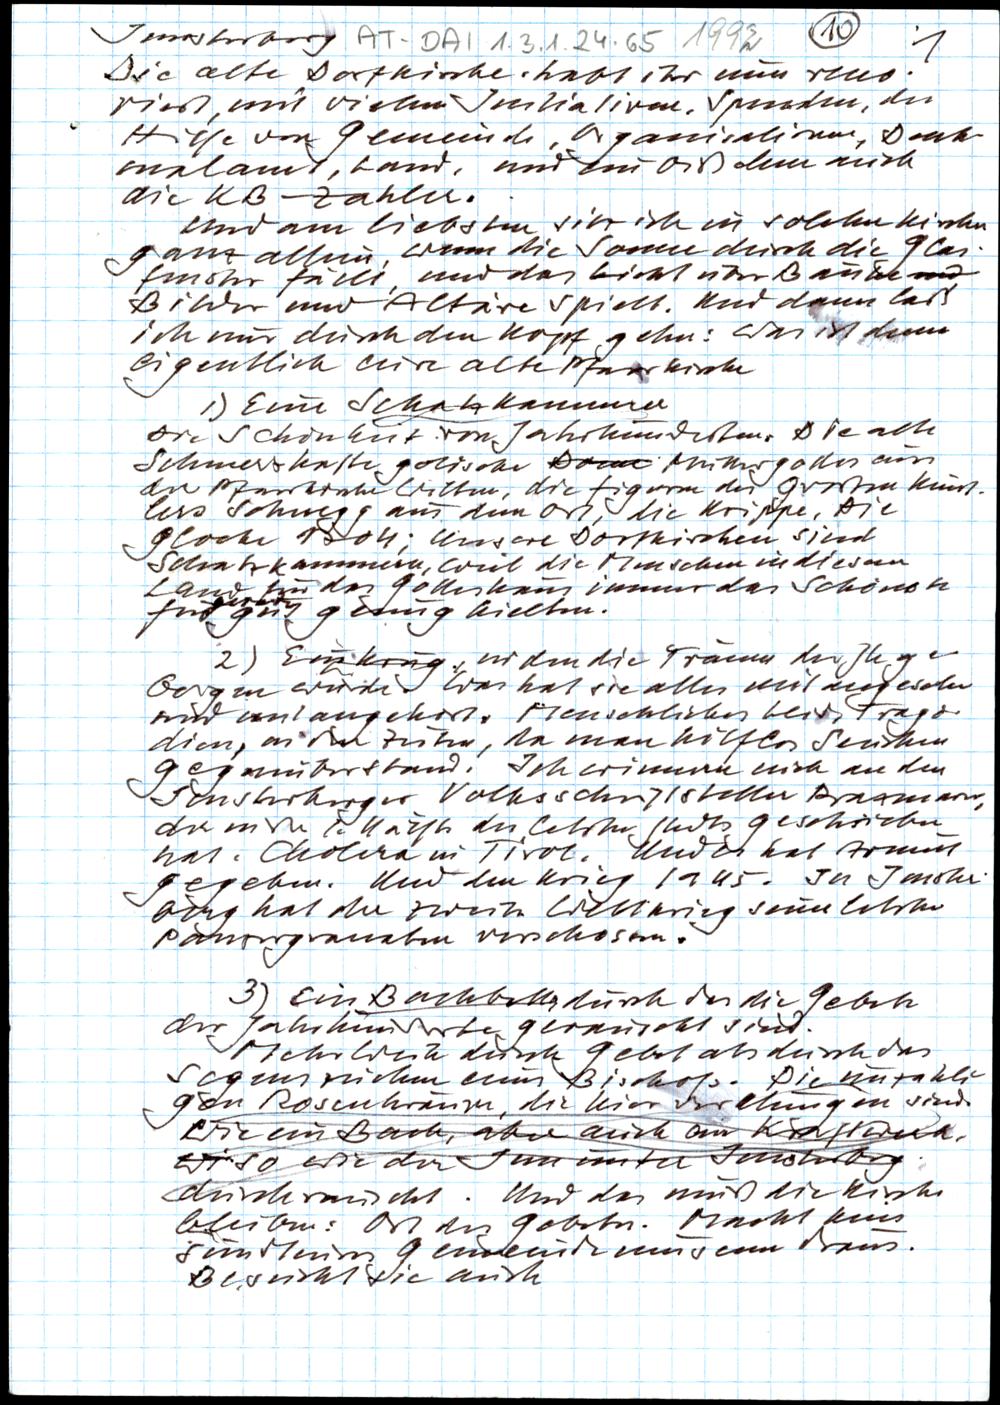 Jenesterberg AT-DAI 1.3.1.24.65 1992 10 1
Die alte Dorfkirche habt ihr nun reno-
viert, mit vielen Initiativen, Spenden, der
Hilfe von Gemeinde, Organisationen, Denk-
malamt, Land, und außerdem auch
die KB-Zahler.
Und am liebsten sitz ich in solchen Kirchen
ganz allein, wenn die Sonne durch die Glas-
fenster fällt, und das Licht über Bänke und
Bilder und Altäre spielt. Und dann lass
ich mir durch den Kopf gehn: Was ist denn
eigentlich eure alte Pfarrkirche
1) Eine Schatzkammer
Die Schönheit von Jahrhunderten. Die alte
Schmerzhafte gotische Muttergottes aus
der Pfarrkirche Wilten, die Figuren des Großen Künst-
lers Schwegg aus dem Ort, die Krippe, die
Glocke 1504; Unsere Dorfkirchen sind
Schatzkammern, weil die Menschen in diesem
Land für das Gotteshaus immer das Schönste
für gerade gut genug hielten.
2) Ein Krug, in dem die Tränen der Zeit ge-
borgen wurden. Was hat sie alles mit angesehn
und mit angehört. Menschliches Leid, Tragö-
dien, in den Zeiten, da man hilflos Seuchen
gegenüberstand. Ich erinnere mich an den
Volksschriftsteller
der in der 2. Hälfte des letzten Jhdts geschrieben
hat. Cholera in Tirol. Und es hat Armut
gegeben. Und den Krieg 1945. In Innster-
berg hat der zweite Weltkrieg seine letzten
Panzergranaten verschossen.
3) Ein Bachbett, durch das die Gebete
der Jahrhunderte gerauscht sind.
Mehr Weihe durch Gebet als durch das
Segenszeichen eines Bischofs. Die unzähli-
gen Rosenkränze, die hier verklungen sind.
Wie ein Bach, aber auch ein Kraftwerk.
so wie der Inn unter Imsterberg
durchrauscht. Und das muß die Kirche
bleiben: Ort des Gebetes. Macht kein
Gemeindemuseum draus.
Besucht sie auch